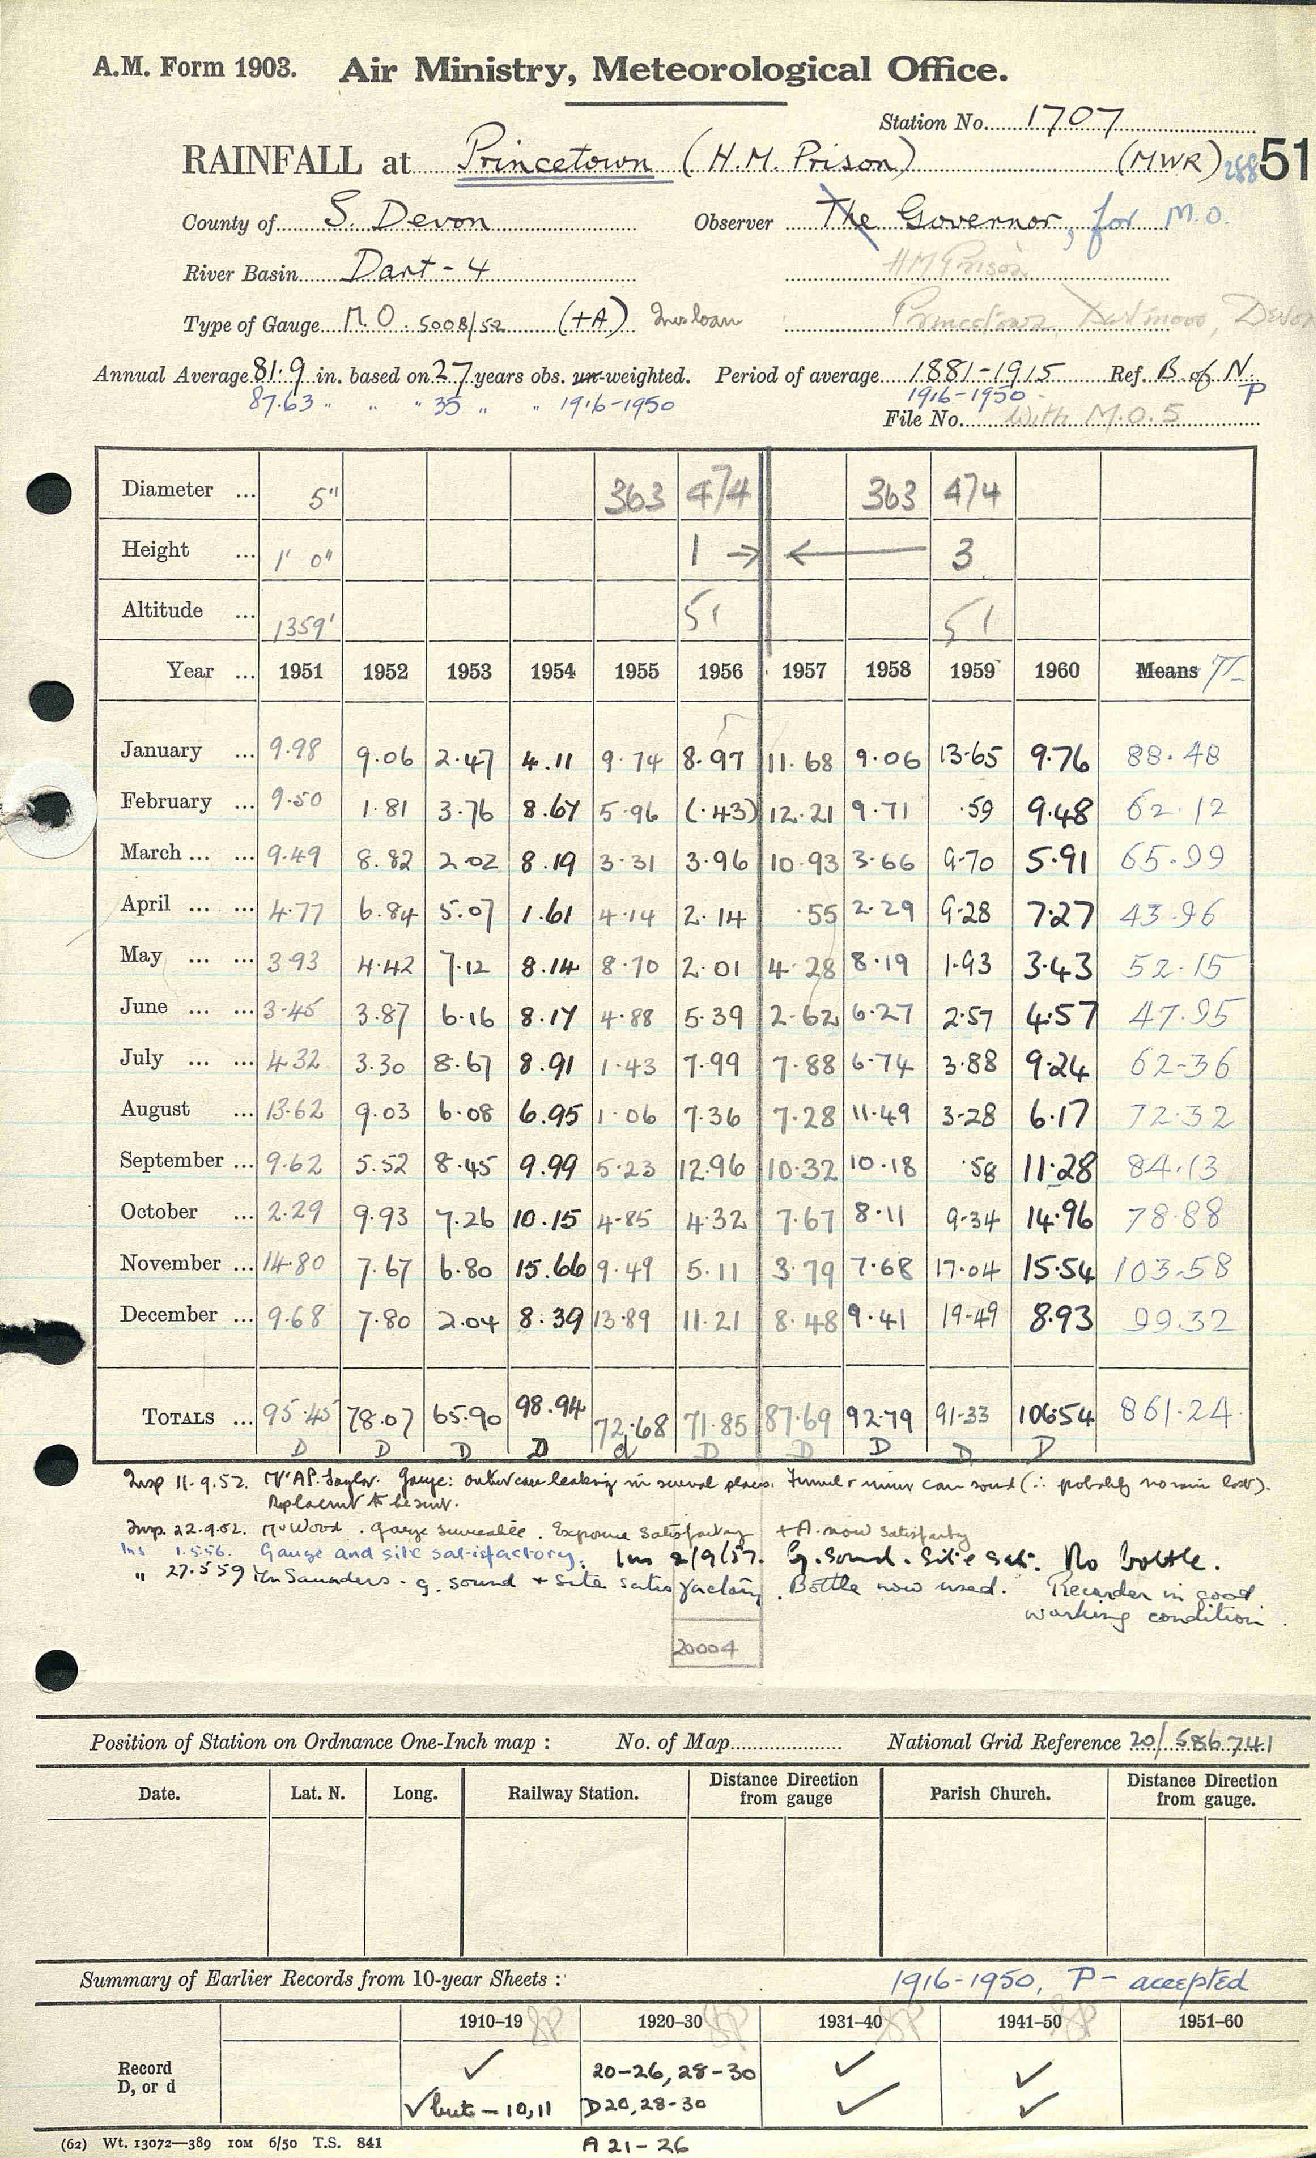 A.M. Form 1903. Air Ministry, Meteorological Office.
Station No. 1707
RAINFALL at Princetown (H.M. Prison) (MWR) 288 51
County of S. Devon Observer The Governor, for M.O.
River Basin Dart - 4 H M Prison
Type of Gauge M.O. 5008/52 (+A) Princetown, Dartmoor, Devon
Annual Average 81.9 in. based on 27 years obs. un-weighted. Period of average 1881-1915 Ref. B of N.
87.63 " " " 35 " " 1916-1950 1916-1950 P
File No. With M.O.5
Diameter ... 5" 363 474 363 474
Height ... 1' 0" 1 → ← 3
Altitude ... 1359' 51 51
Year ... 1951 1952 1953 1954 1955 1956 1957 1958 1959 1960 Means
January ... 9.98 9.06 2.47 4.11 9.74 8.97 11.68 9.06 13.65 9.76 88.48
February ... 9.50 1.81 3.76 8.67 5.96 (.43) 12.21 9.71 .59 9.48 62.12
March ... ... 9.49 8.82 2.02 8.19 3.31 3.96 10.93 3.66 9.70 5.91 65.99
April ... ... 4.77 6.84 5.07 1.61 4.14 2.14 .55 2.29 9.28 7.27 43.96
May ... ... 3.93 4.42 7.12 8.14 8.70 2.01 4.28 8.19 1.93 3.43 52.15
June ... ... 3.45 3.87 6.16 8.17 4.88 5.39 2.62 6.27 2.57 4.57 47.95
July ... ... 4.32 3.30 8.67 8.91 1.43 7.99 7.88 6.74 3.88 9.24 62.36
August ... 13.62 9.03 6.08 6.95 1.06 7.36 7.28 11.49 3.28 6.17 72.32
September ... 9.62 5.52 8.45 9.99 5.23 12.96 10.32 10.18 .58 11.28 84.13
October ... 2.29 9.93 7.26 10.15 4.85 4.32 7.67 8.11 9.34 14.96 78.88
November ... 14.80 7.67 6.80 15.66 9.49 5.11 3.79 7.68 17.04 15.54 103.58
December ... 9.68 7.80 2.04 8.39 13.89 11.21 8.48 9.41 19.49 8.93 99.32
TOTALS ... 95.45 78.07 65.90 98.94 72.68 71.85 87.69 92.79 91.33 106.54 861.24
D D D D d D D D D D
Insp 11.9.52. Mr A.P. Taylor. Gauge: outer can leaking in several places. Funnel & inner can sound (∴ probably no rain lost).
Replacement to be sent.
Insp. 22.9.52. Mr Wood. Gauge serviceable. Exposure satisfactory +A now satisfactory
Ins 1.5.56. Gauge and site satisfactory. Ins 2/9/57. G. sound. Site sat. No bottle.
" 27.5.59 Mr Saunders. g. sound + site satisfactory. Bottle now used. Recorder in good
working condition
20004
Position of Station on Ordnance One-Inch map : No. of Map National Grid Reference 20/586741
Date. Lat. N. Long. Railway Station. Distance Direction from gauge Parish Church. Distance Direction from gauge.
Summary of Earlier Records from 10-year Sheets : 1916-1950, P - accepted
1910-19 1920-30 1931-40 1941-50 1951-60
Record ✓ 20-26, 28-30 ✓ ✓
D, or d ✓ but - 10, 11 D20, 28-30 ✓ ✓
(62) Wt. 13072—389 10M 6/50 T.S. 841 A 21-26